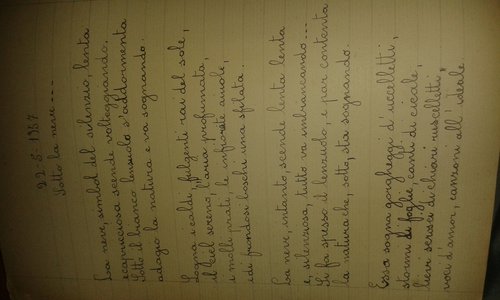 22.5.1957
Sotto la neve...
La neve, simbol del silenzio, lenta
e capricciosa scende volteggiando.
Sotto il bianco lenzuolo s'addormenta
adagio la natura e va sognando.
Sogna i caldi, fulgenti rai del sole,
il ciel sereno, l'aria profumata,
i molli prati, le infiorate aiuole,
e di frondosi boschi una sfilata.
La neve, intanto, scende lenta lenta
e, silenziosa, tutto va imbiancando...
Si fa spesso il lenzuolo, e par contenta
la natura che, sotto, sta sognando.
Essa sogna gorgheggi d'uccelletti,
stormir di foglie, canti di cicale,
lieve scrosciar di chiari ruscelletti
voci d'amor, canzoni all'ideale